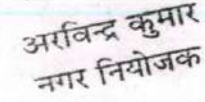 अरविन्द्र कुमार
नगर नियोजक